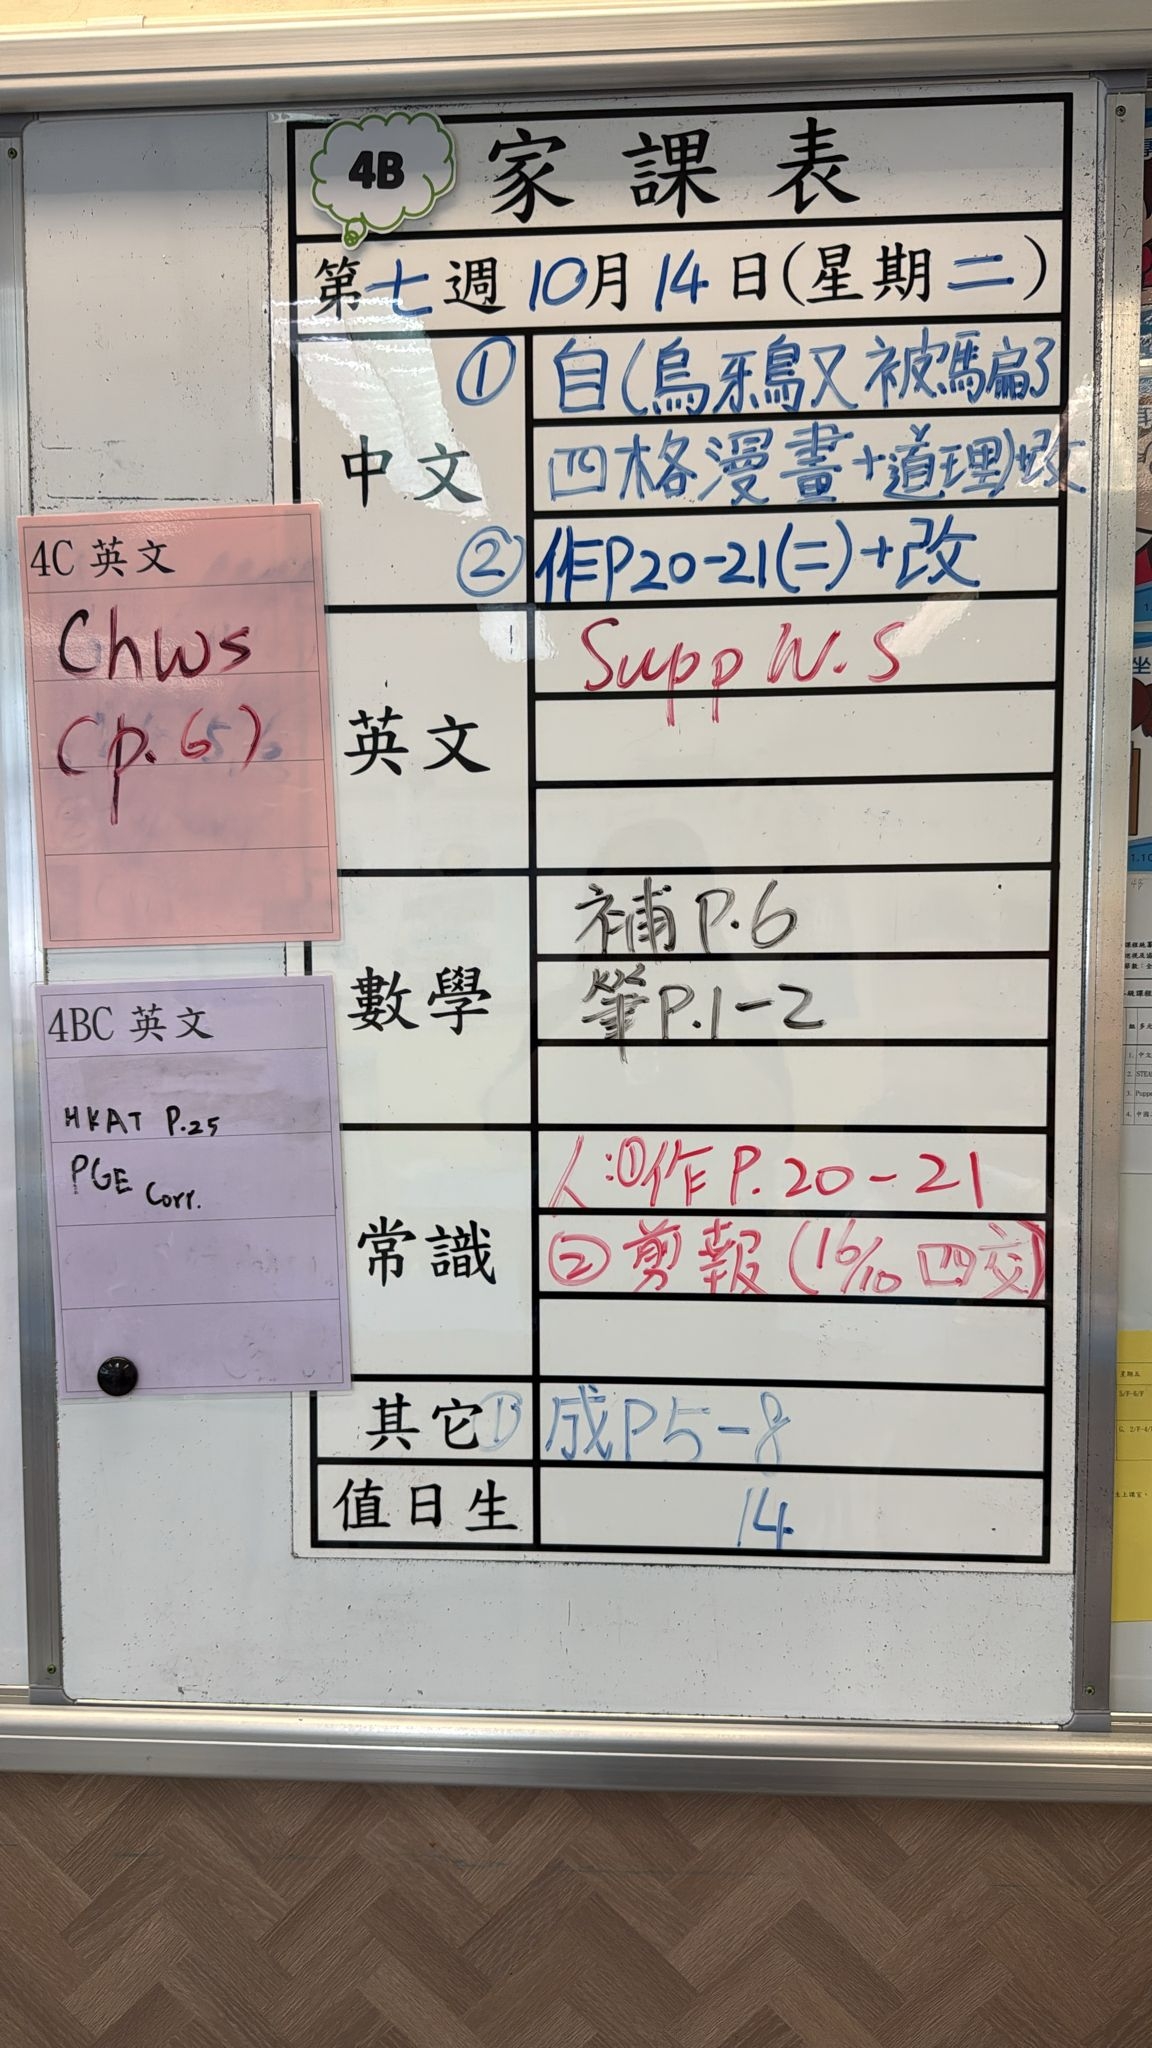 4B
家課表
第七週10月14日(星期二)
中文
① 自(烏牙鳥又被騙了
四格漫畫+道理)+改
② 作P20-21(二)+改
英文
Supp W.S
數學
補P.6
筆P.1-2
常識
人:①作P.20-21
②剪報(16/10 四交)
其它 ① 成P5-8
值日生 14
4C 英文
Chws
(p.6)
4BC 英文
HKAT P.25
PGE Corr.